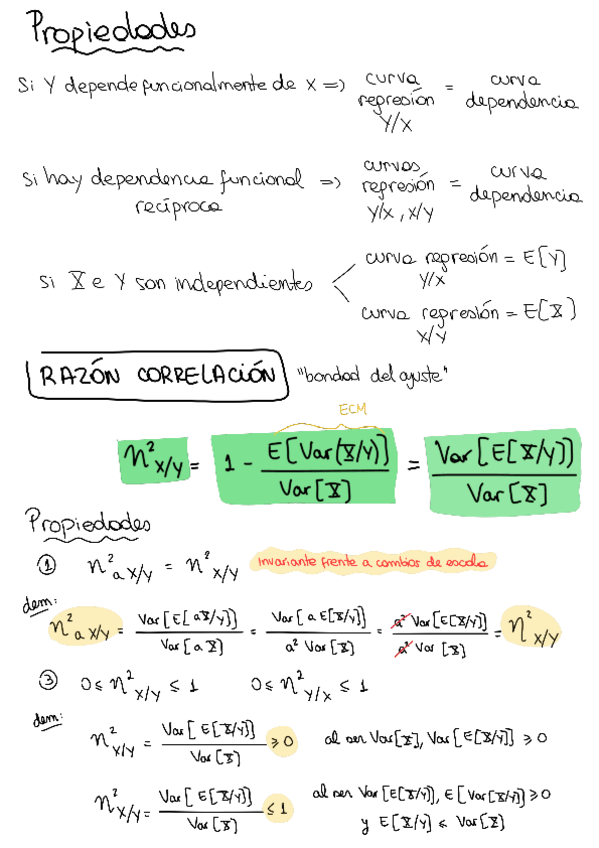 Propiedades
Si Y depende funcionalmente de X => curva regresión Y/X = curva dependencia
Si hay dependencia funcional recíproca => curvas regresión Y/X, X/Y = curva dependencia
Si X e Y son independientes
curva regresión Y/X = E[Y]
curva regresión X/Y = E[X]
RAZÓN CORRELACIÓN "bondad del ajuste"
ECM
η²X/Y = 1 - E[Var(X/Y)] / Var[X] = Var[E[X/Y]] / Var[X]
Propiedades
① η²aX/Y = η²X/Y invariante frente a cambios de escala
dem:
η²aX/Y = Var[E[aX/Y]] / Var[aX] = Var[aE[X/Y]] / a² Var[X] = a² Var[E[X/Y]] / a² Var[X] = η²X/Y
③ 0 ≤ η²X/Y ≤ 1 0 ≤ η²Y/X ≤ 1
dem:
η²X/Y = Var[E[X/Y]] / Var[X] ≥ 0 al ser Var[X], Var[E[X/Y]] ≥ 0
η²X/Y = Var[E[X/Y]] / Var[X] ≤ 1 al ser Var[E[X/Y]], E[Var[X/Y]] ≥ 0
y E[X/Y] ≤ Var[X]